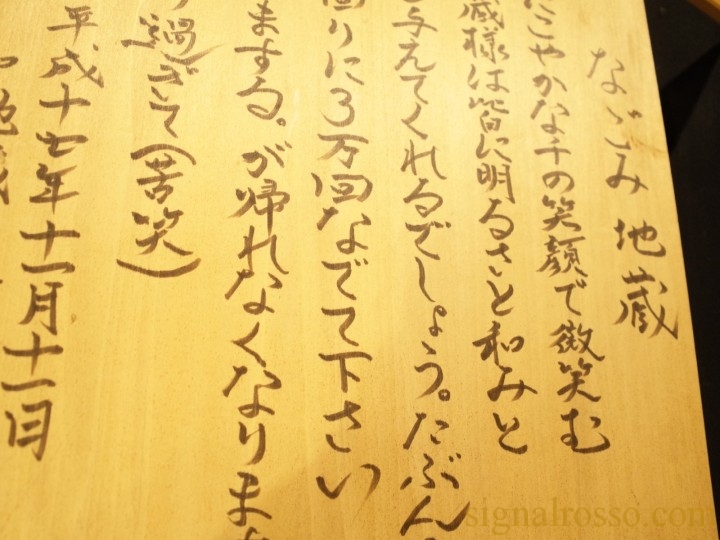 なごみ地蔵
にこやかな千の笑顔で微笑む
蔵様は皆に明るさと和みと
与えてくれるでしょう。たぶん
回りに3万回なでて下さい
まする。が帰れなくなりま
過ぎて(苦笑)
平成十七年十一月十一日
signalrosso.com